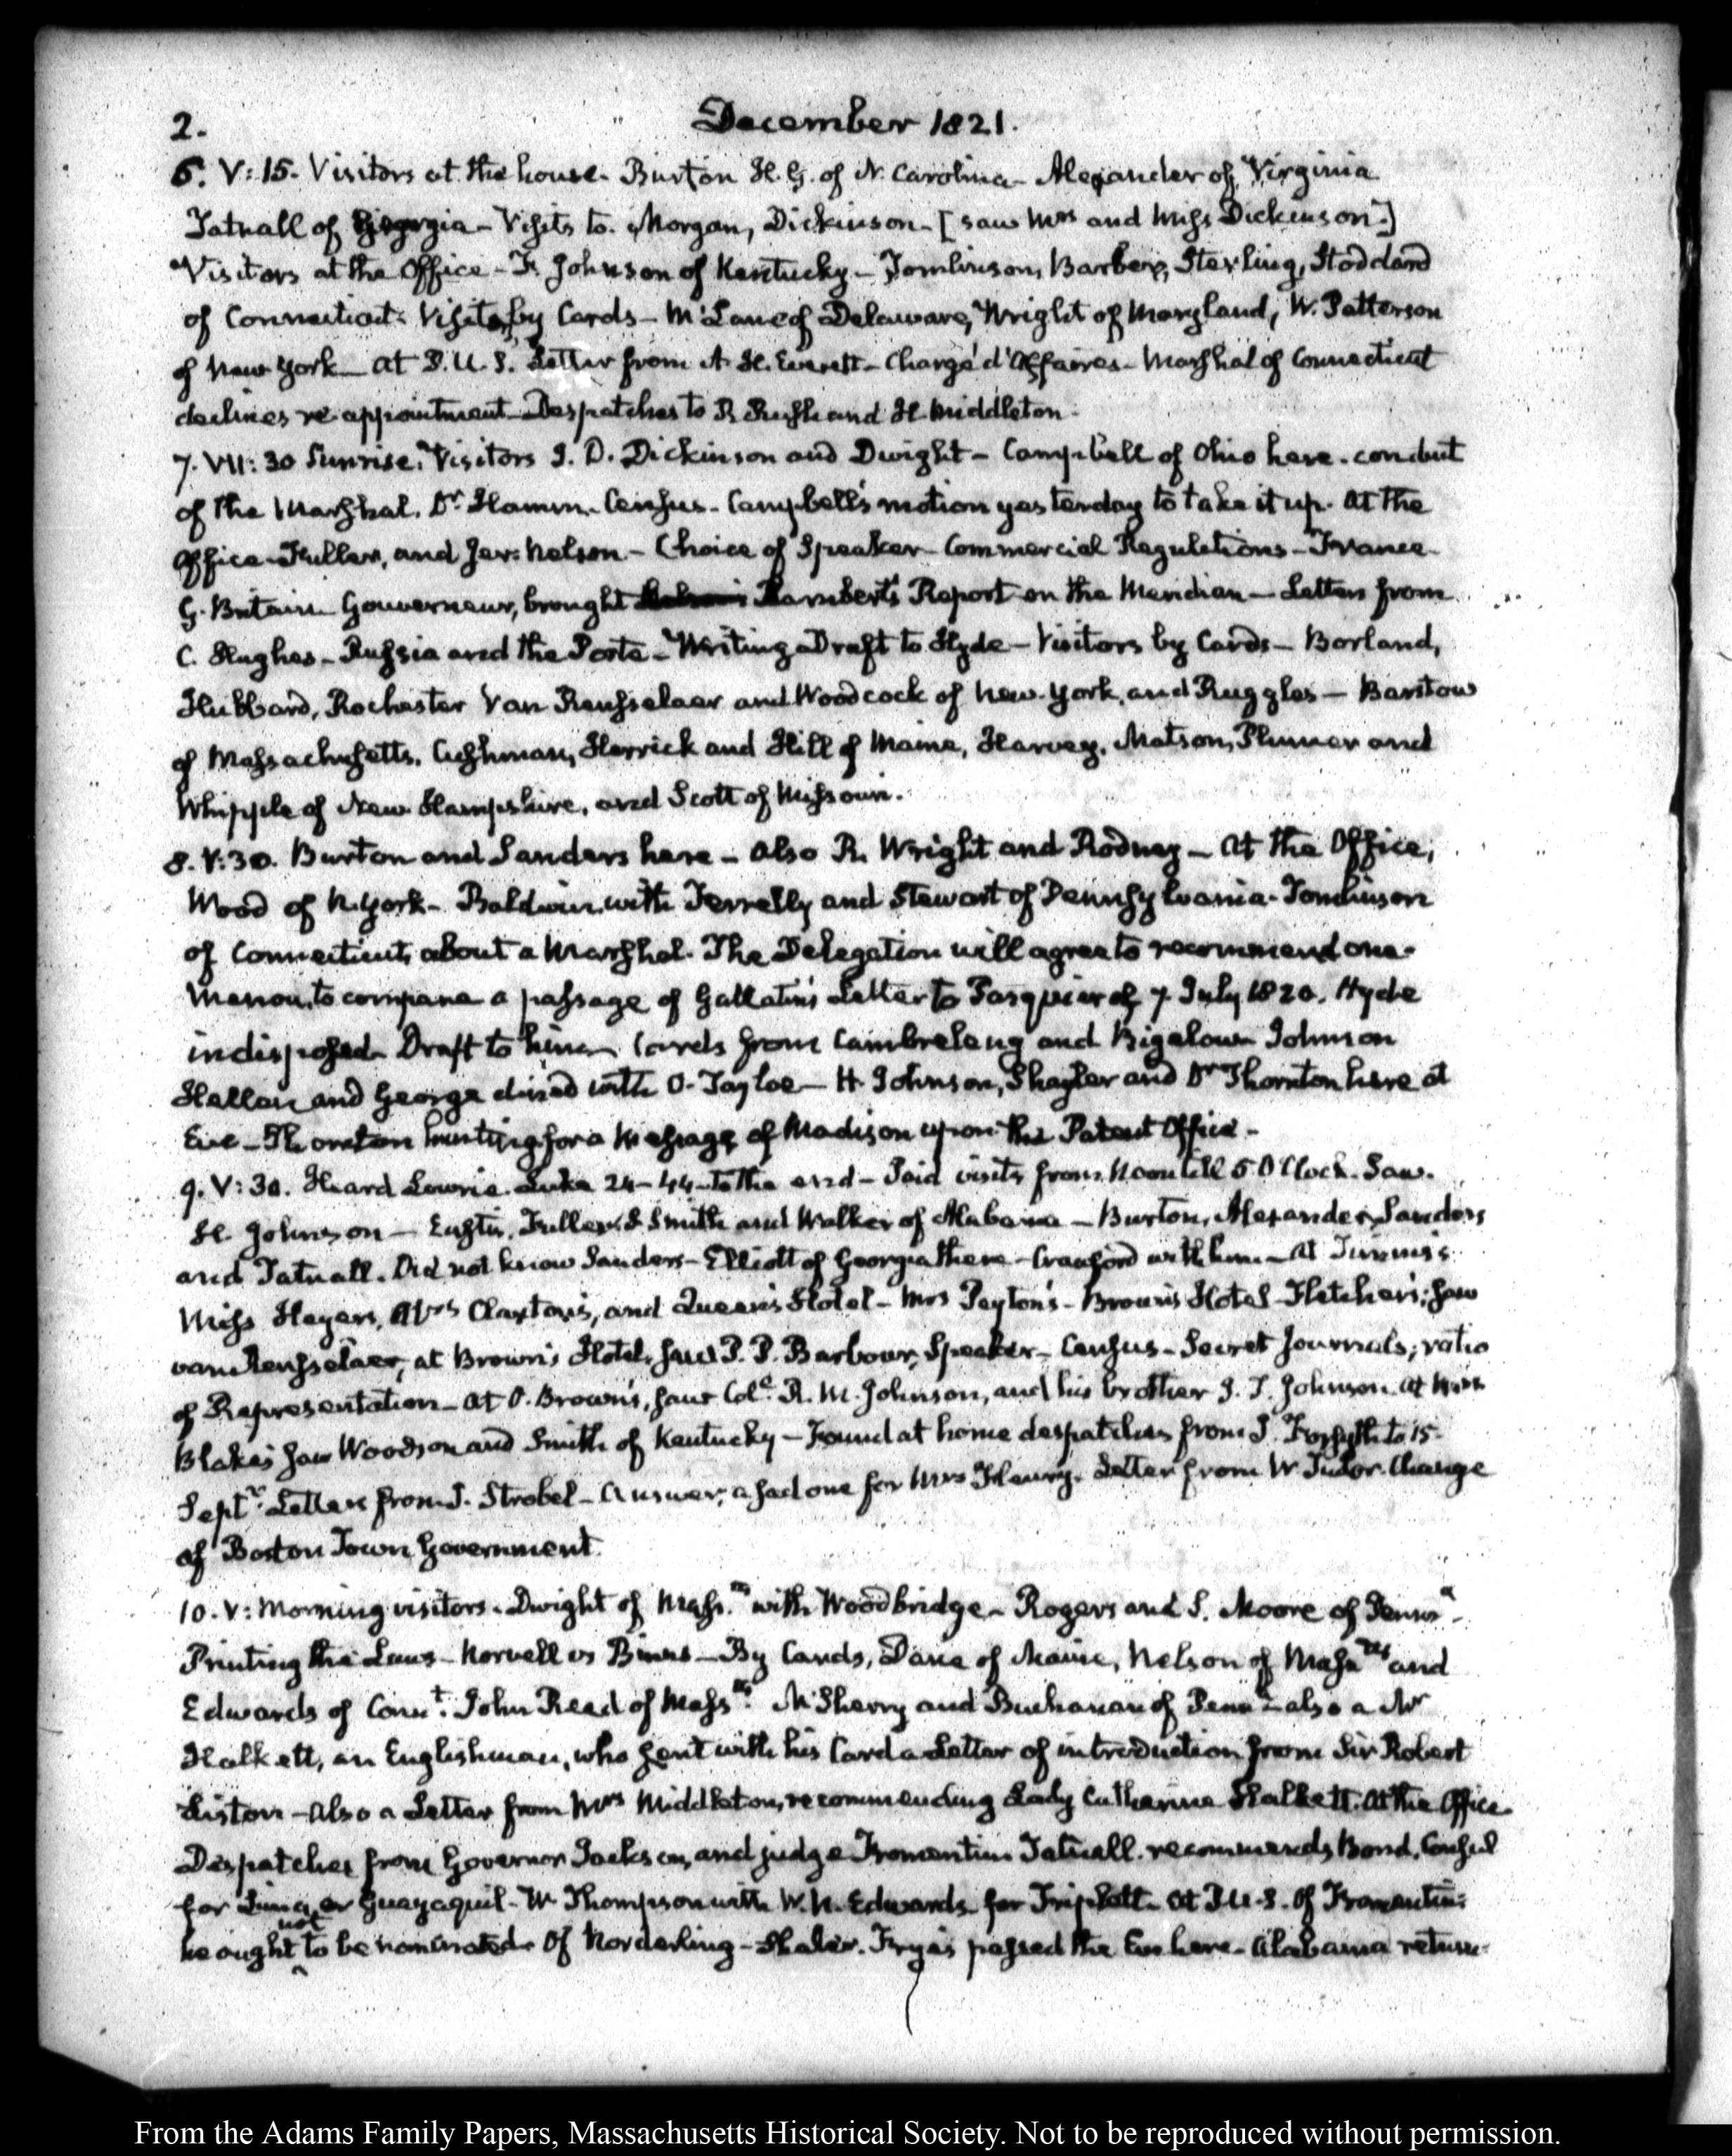 2.
December 1821.
6. V: 15. Visitors at the house. Burton H. G. of N. Carolina - Alexander of Virginia
Tatnall of Georgia - Visits to Morgan, Dickinson - [saw Mrs and Miss Dickinson.]
Visitors at the Office - F. Johnson of Kentucky - Tomlinson, Barber, Sterling, Stoddard
of Connecticut. Visits by Cards - McLane of Delaware, Wright of Maryland, W. Patterson
of New York - at P. U. S. Letter from A. H. Everett - Chargé d'Affaires - Marshal of Connecticut
declines re-appointment - Despatches to R. Rush and H. Middleton.
7. VII: 30 Sunrise. Visitors J. D. Dickinson and Dwight - Campbell of Ohio here. conduct
of the Marshal. Dr Hamm. Census - Campbell's motion yesterday to take it up. At the
Office - Fuller, and Jer: Nelson - Choice of Speaker - Commercial Regulations - France
G. Britain Gouverneur, brought Lambert's Report on the Meridian - Letters from
C. Hughes - Russia and the Porte - Writing Draft to Hyde - Visitors by Cards - Borland,
Hubbard, Rochester Van Rensselaer and Woodcock of New-York, and Ruggles - Barstow
of Massachusetts, Cushman, Herrick and Hill of Maine, Harvey, Matson, Plumer and
Whipple of New Hampshire, and Scott of Missouri.
8. V: 30. Burton and Sanders here - also R. Wright and Rodney - At the Office,
Wood of N. York - Baldwin with Ferrelly and Stewart of Pennsylvania - Tomlinson
of Connecticut, about a Marshal. The Delegation will agree to recommend one -
Menou, to compare a passage of Gallatin's Letter to Pasquier of 7. July 1820. Hyde
indisposed - Draft to him - Cards from Cambreleng and Bigelow - Johnson
Hellen and George dined with O. Tayloe - H. Johnson, Shayler and Dr Thornton here at
Eve - Thornton hunting for a Message of Madison upon the Patent Office -
9. V: 30. Heard Lowrie. Luke 24-44 - to the end - Paid visits from Noon till 5 O'Clock. Saw
H. Johnson - Eustis, Fuller, S. Smith and Walker of Alabama - Burton, Alexander, Sanders
and Tatnall. Did not know Sanders - Elliott of Georgia there - Crawford with him - At
Miss Heyers, Mrs Claxton's, and Queen's Hotel - Mrs Peyton's - Brown's Hotel - Fletcher's; saw
van Rensselaer, at Brown's Hotel, saw P. P. Barbour, Speaker - Census - Secret Journals; ratio
of Representation - at O. Brown's, saw Col. R. M. Johnson, and his brother J. T. Johnson. At Mrs
Blake's saw Woodson and Smith of Kentucky - Found at home despatches from J. Forsyth to 15.
Sept. Letters from J. Strobel - Answer, a sad one for Mrs Henry. Letter from W. Tudor. Change
of Boston Town Government.
10. V: Morning visitors. Dwight of Mass. with Woodbridge - Rogers and S. Moore of Penna -
Printing the Laws - Norvell vs Binns - By Cards, Dane of Maine, Nelson of Mass and
Edwards of Connt. John Reed of Mass. McSherry and Buchanan of Penna - also a Mr
Halkett, an Englishman, who sent with his Card a Letter of introduction from Sir Robert
Liston - also a Letter from Mrs Middleton, recommending Lady Catherine Halkett. At the Office
Despatches from Governor Jackson, and judge Fromentin Tatnall. recommends Bond, Consul
for Lima, or Guayaquil - W. Thompson with W. N. Edwards for Triplett - at P. U. S. Of Fromentin:
he ought not to be nominated - Of Norderling - Shaler. Frye's passed the Eve here - Alabama return
From the Adams Family Papers, Massachusetts Historical Society. Not to be reproduced without permission.